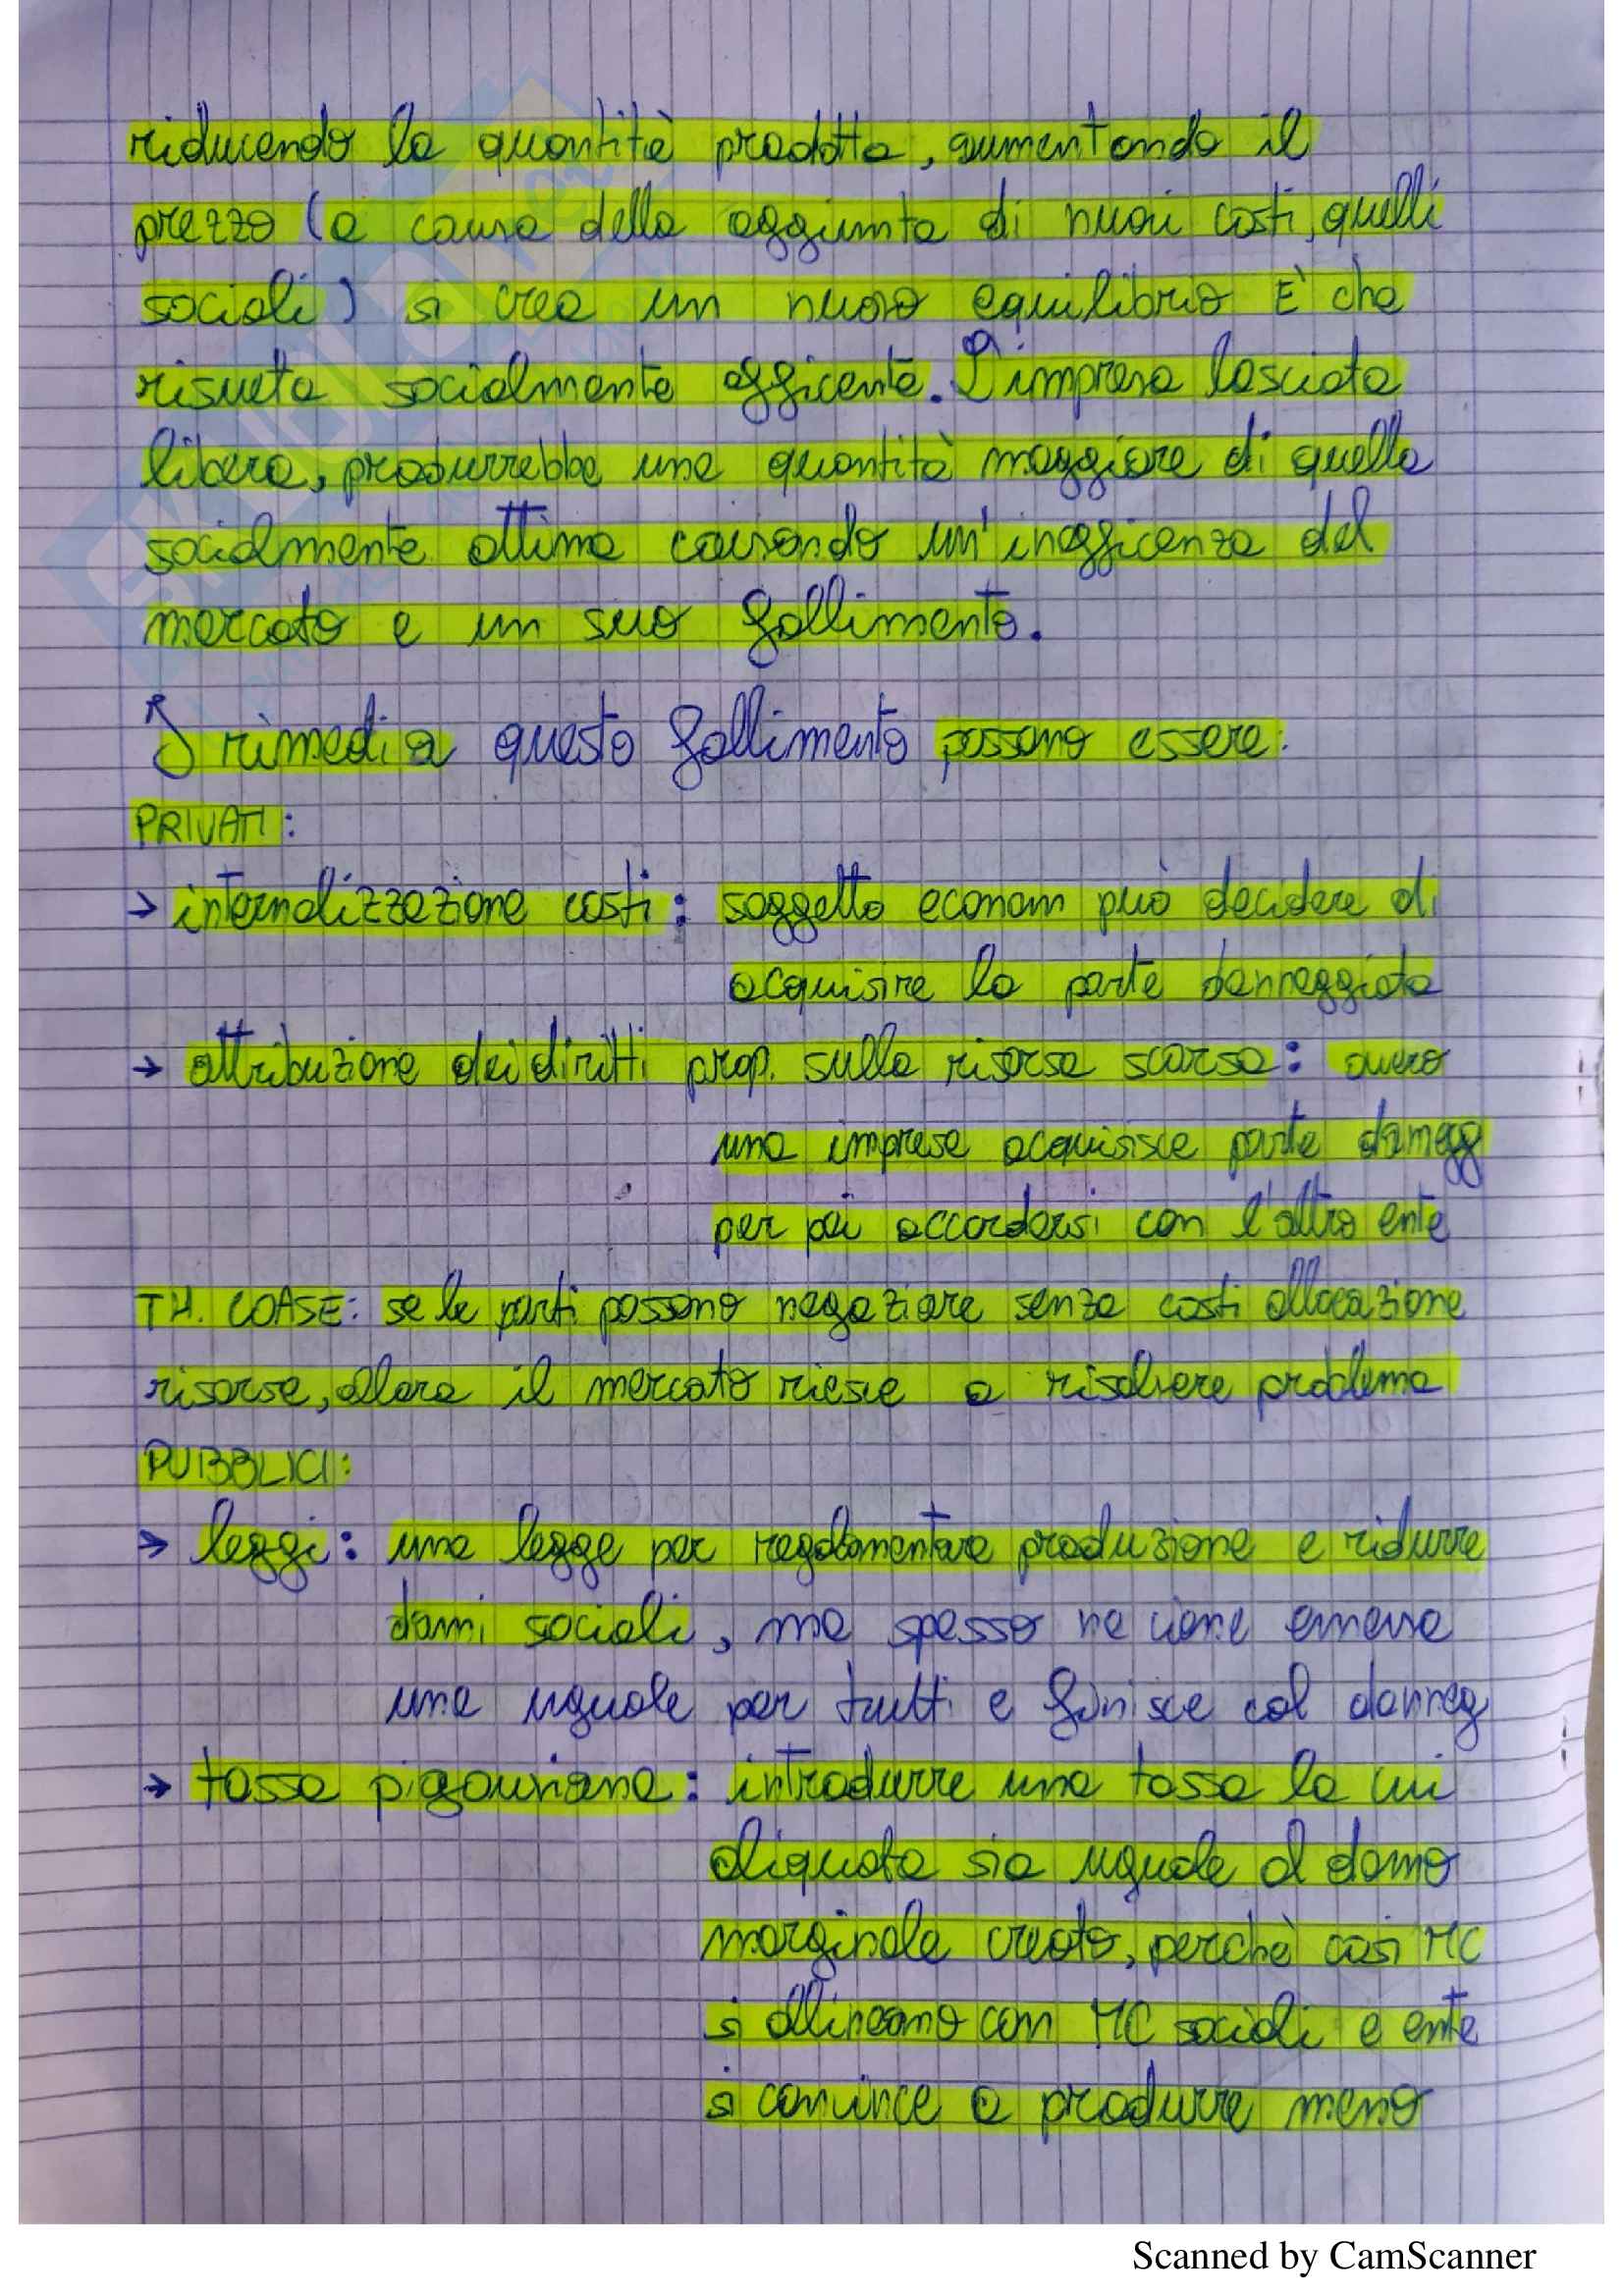 riducendo la quantità prodotta, aumentando il
prezzo (a causa della aggiunta di nuovi costi, quelli
sociali) si crea un nuovo equilibrio E' che
risulta socialmente efficente. L'impresa lasciata
libera, produrrebbe una quantità maggiore di quella
socialmente ottima causando un'inefficenza del
mercato e un suo fallimento.
I rimedi a questo fallimento possono essere:
PRIVATI:
→ internalizzazione costi: soggetto econom può decidere di
acquisire la parte danneggiata
→ attribuzione dei diritti prop. sulla risorsa scarsa: ovvero
una impresa acquisisce parte dannegg
per poi accordarsi con l'altro ente
TH. COASE: se le parti possono negoziare senza costi allocazione
risorse, allora il mercato riesce a risolvere problema
PUBBLICI:
→ leggi: una legge per regolamentare produzione e ridurre
danni sociali, ma spesso ne viene emessa
una uguale per tutti e finisce col danneg
→ tassa pigouviana: introdurre una tassa la cui
aliquota sia uguale al danno
marginale creato, perchè così MC
si allineano con MC sociali e ente
si convince a produrre meno
Scanned by CamScanner